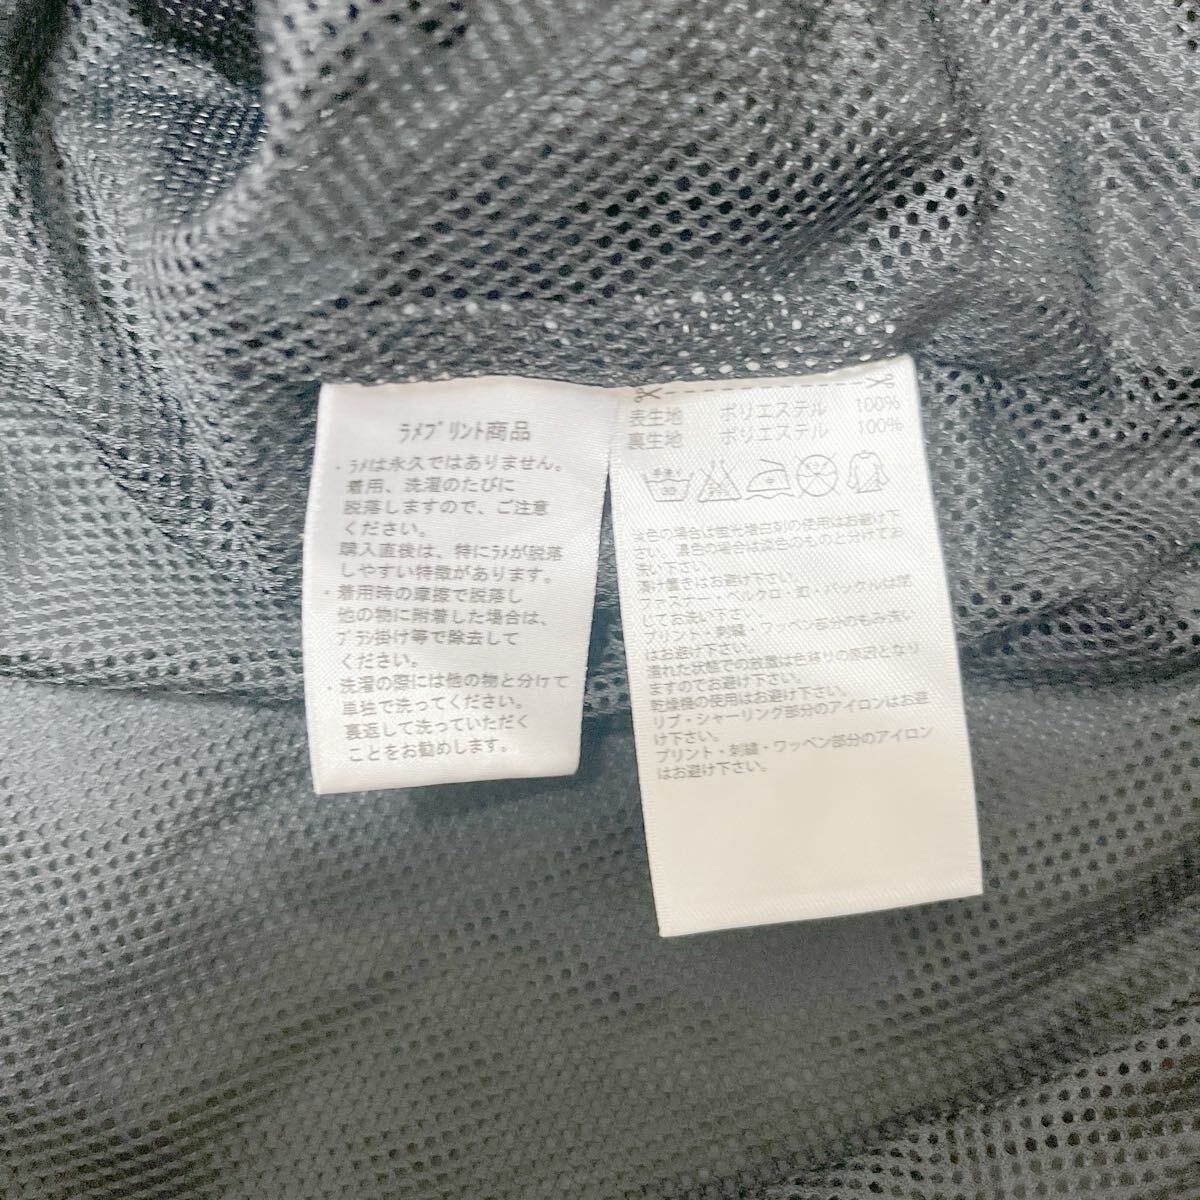 ﾗﾒﾌﾟﾘﾝﾄ商品
・ﾗﾒは永久ではありません。
着用、洗濯のたびに
脱落しますので、ご注意
ください。
購入直後は、特にﾗﾒが脱落
しやすい特徴があります。
・着用時の摩擦で脱落し
他の物に附着した場合は、
ﾌﾞﾗｼ掛け等で除去して
ください。
・洗濯の際には他の物と分けて
単独で洗ってください。
裏返して洗っていただく
ことをお勧めします。
表生地 ポリエステル 100%
裏生地 ポリエステル 100%
手洗イ
30
淡色の場合は蛍光増白剤の使用はお避け下
さい。濃色の場合は淡色のものと分けてお
洗い下さい。
漬け置きはお避け下さい。
ファスナー・ベルクロ・釦・バックルは閉
じてお洗い下さい。
プリント・刺繍・ワッペン部分のもみ洗い
はお避け下さい。
濡れた状態での放置は色移りの原因となり
ますのでお避け下さい。
乾燥機の使用はお避け下さい。
リブ・シャーリング部分のアイロンはお避
け下さい。
プリント・刺繍・ワッペン部分のアイロン
はお避け下さい。